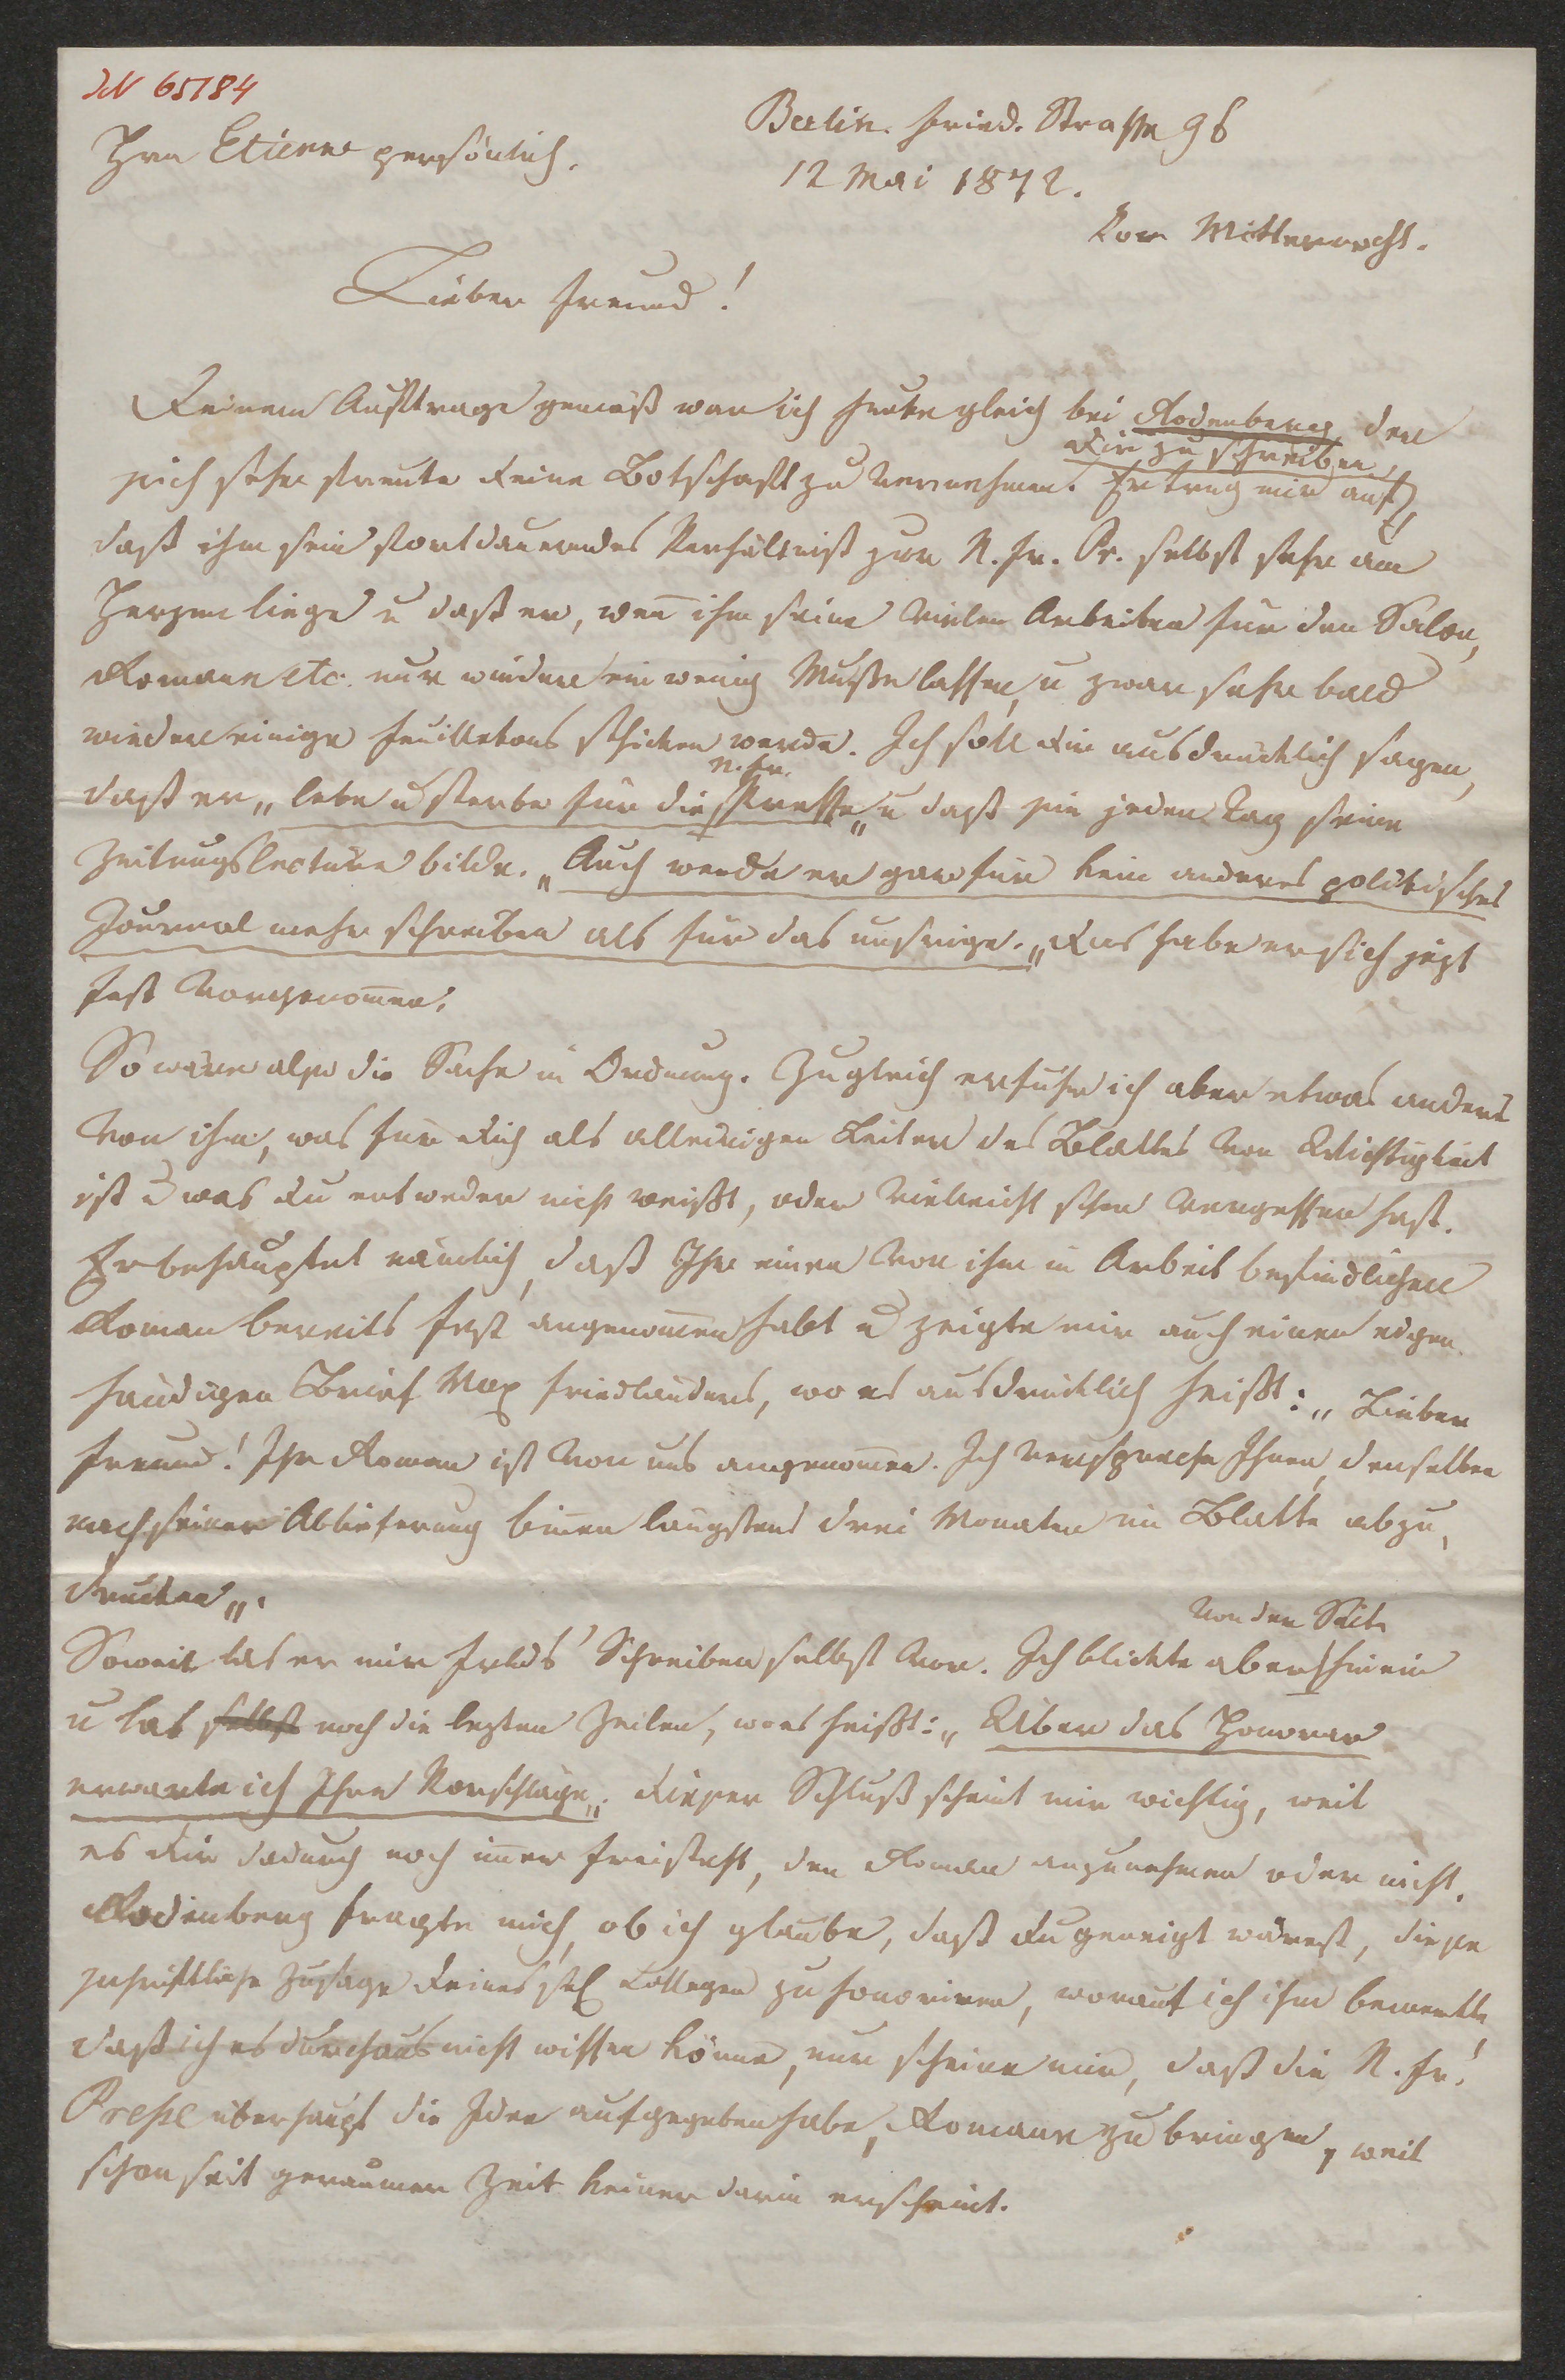 JN 65184
Hrn Etienne persönlich.
Berlin. Fried. Strasse 96
12 Mai 1872.
Vor Mitternacht.
Lieber Freund!
Deinem Auftrage gemäß war ich heute gleich bei Rodenberg der
sich sehr freute Deine Botschaft zu vernehmen. Er trug mir auf, Dir zu schreiben,
daß ihm sein fortdauerndes Verhältniß zur N. Fr. Pr. selbst sehr am
Herzen liege u daß er, wen̄ ihm seine vielen Arbeiten für den Salon,
Romane etc. nur wieder ein wenig Muße lassen, u zwar sehr bald
wieder einige Feuilletons schicken werde. Ich soll Dir ausdrücklich sagen,
daß er „lebe u sterbe für die N. Fr. Presse„ u daß sie jeden Tag seine
Zeitungslecture bilde. „Auch werde er gar für kein anderes politisches
Journal mehr schreiben als für das unsrige.„ Das habe er sich jezt
fest vorgenom̄en.
So wäre also die Sache in Ordnung. Zugleich erfuhr ich aber etwas anders
von ihm, was für Dich als alleinigen Leiter des Blattes von Wichtigkeit
ist u was Du entweder nicht weißt, oder vielleicht schon vergessen hast.
Er behauptet nämlich, daß Ihr einen von ihm in Arbeit befindlichen
Roman bereits fest angenom̄en habt u zeigte mir auch einen eigen-
händigen Brief Max Friedländers, wo es ausdrücklich heißt: „Lieber
Freund! Ihr Roman ist von uns angenom̄en. Ich verspreche Ihnen, denselben
nach seiner Ablieferung bin̄en längstens drei Monaten im Blatte abzu-
drucken„.
Soweit las er mir Frlds' Schreiben selbst vor. Ich blickte aber von der Seite hinein
u las selbst noch die lezten Zeilen, wo es heißt: „Über das Honorar
erwarte ich Ihre Vorschläge„. Dieser Schluß scheint mir wichtig, weil
es Dir dadurch noch im̄er freisteht, den Roman anzunehmen oder nicht.
Rodenberg fragte mich, ob ich glaube, daß Du geneigt wärest, diese
schriftliche Zusage Deines sel Collegen zu honoriren, worauf ich ihm bemerkte
daß ich es durchaus nicht wissen könne, nur scheine mir, daß die N. Fr.
Presse überhaupt die Idee aufgegeben habe, Romane zu bringen, weil
schon seit geraumer Zeit keiner darin erscheint.